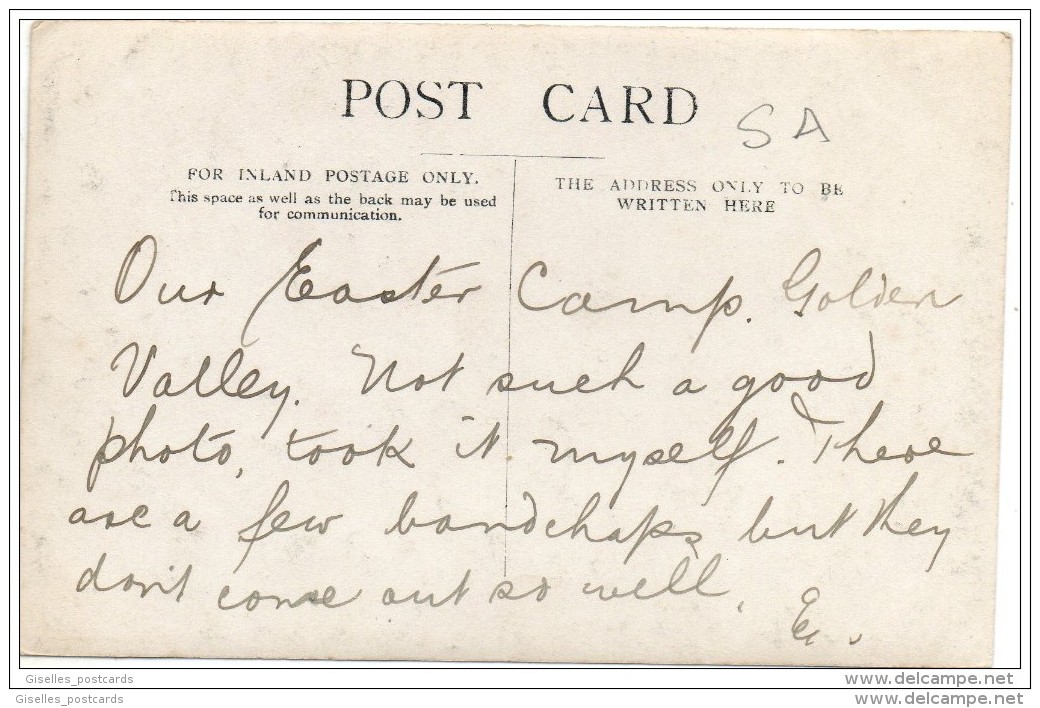 POST CARD
SA
FOR INLAND POSTAGE ONLY.
This space as well as the back may be used
for communication.
THE ADDRESS ONLY TO BE
WRITTEN HERE
Our Easter Camp. Golden
Valley. Not such a good
photo, took it myself. There
are a few bandchaps but they
don't come out so well.
E.
Giselles_postcards
www.delcampe.net
Giselles_postcards
www.delcampe.net